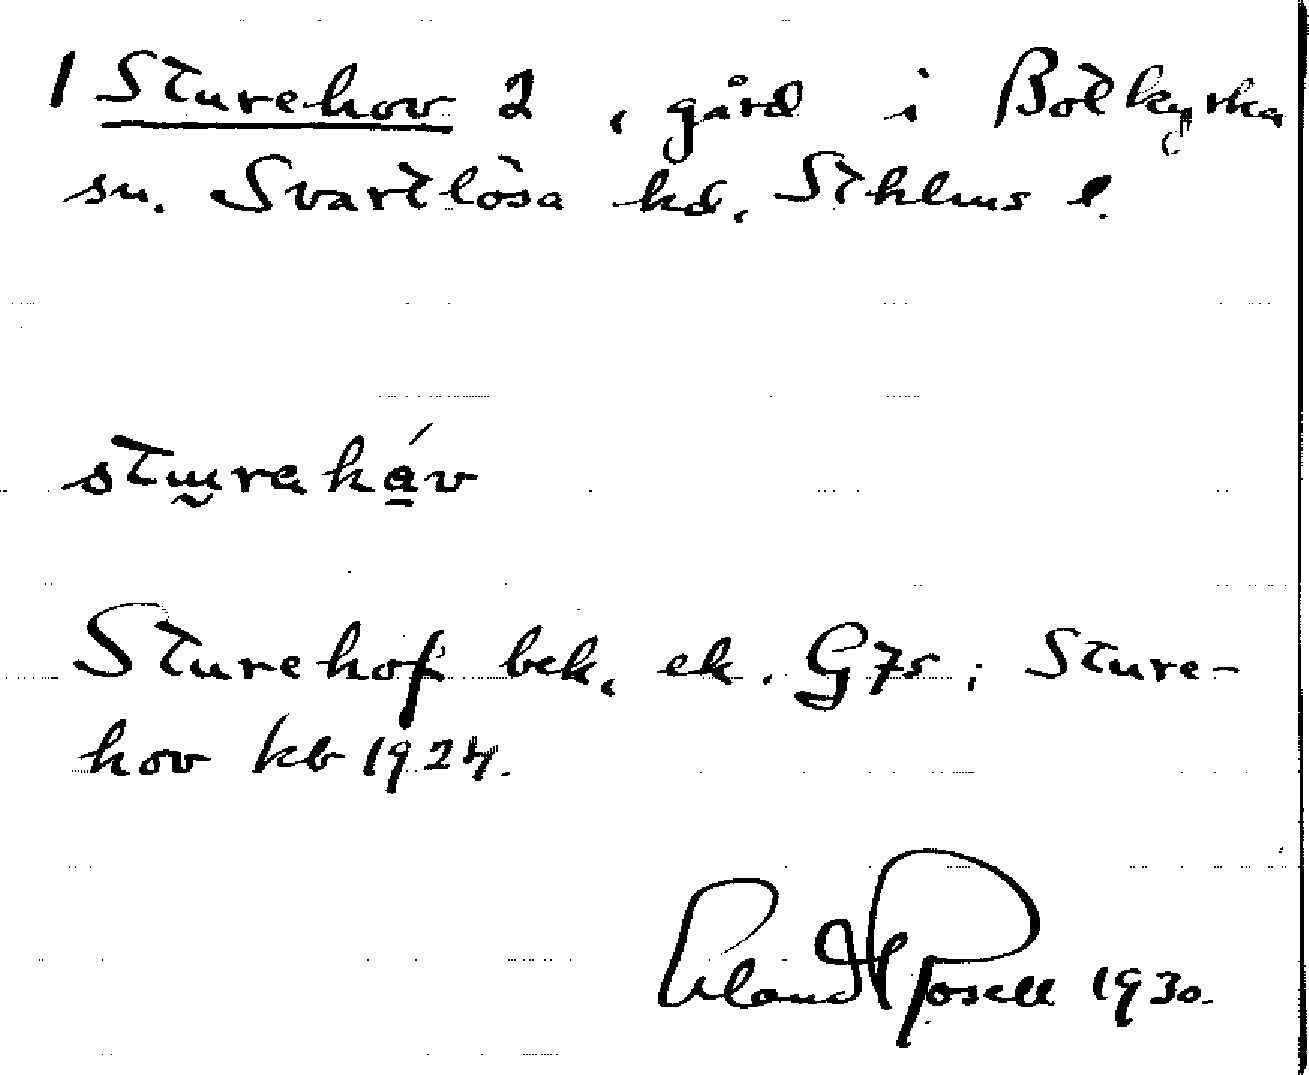 1 Sturehov 2, gård i Botkyrka
sn. Svartlösa hd. Sthlms l.
Sturehof bek. ek. G75; Sture-
hov kb 1924.
Erland Rosell 1930.